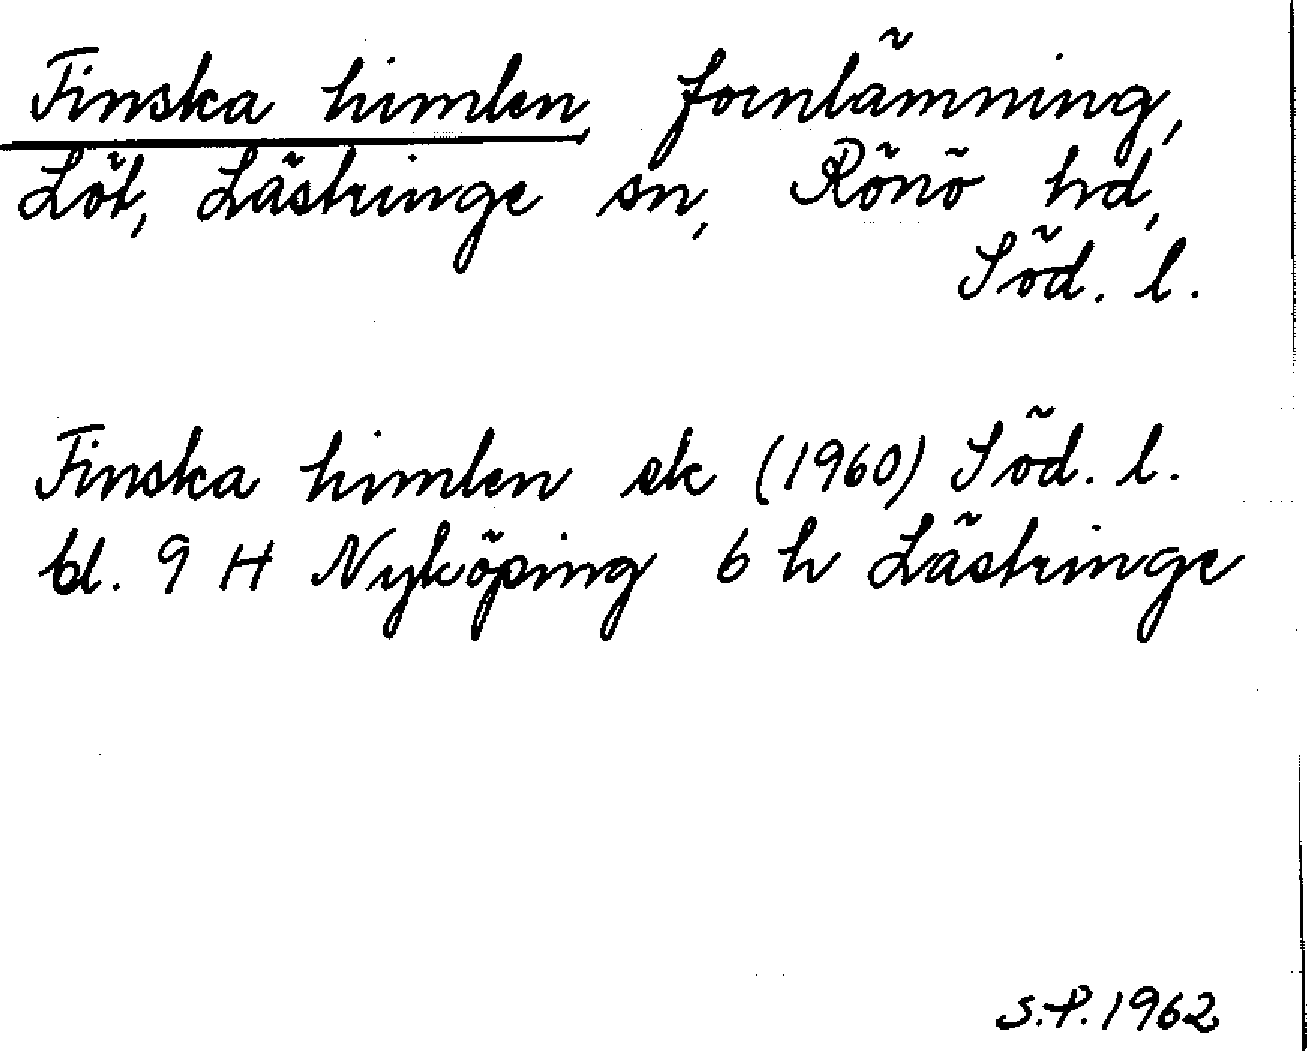 Finska himlen, fornlämning,
Löt, Lästringe sn, Rönö hd,
Söd. l.
Finska himlen ek (1960) Söd. l.
bl. 9 H Nyköping 6 h Lästringe
S.P. 1962